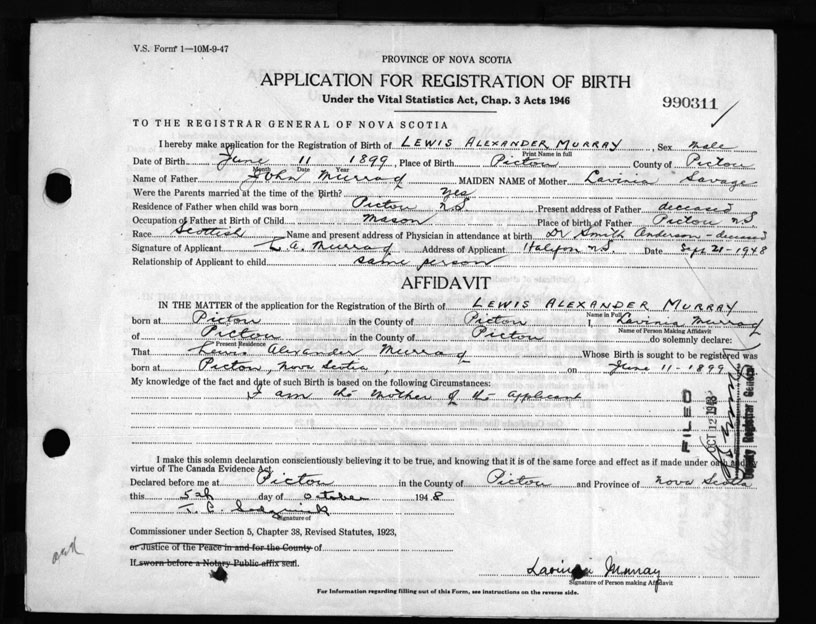 V.S. Form 1—10M-9-47
PROVINCE OF NOVA SCOTIA
APPLICATION FOR REGISTRATION OF BIRTH
Under the Vital Statistics Act, Chap. 3 Acts 1946
990311
TO THE REGISTRAR GENERAL OF NOVA SCOTIA
I hereby make application for the Registration of Birth of LEWIS ALEXANDER MURRAY, Sex male
Print Name in full
Date of Birth June 11 1899, Place of Birth Pictou County of Pictou
Month Date Year
Name of Father John Murray MAIDEN NAME of Mother Lavinia Savage
Were the Parents married at the time of the Birth? yes
Residence of Father when child was born Pictou N.S. Present address of Father deceased
Occupation of Father at Birth of Child Mason Place of birth of Father Pictou N.S.
Race Scottish Name and present address of Physician in attendance at birth Dr Smith Anderson - deceased
Signature of Applicant L. A. Murray Address of Applicant Halifax N.S. Date Sept 21-1948
Relationship of Applicant to child same person
AFFIDAVIT
IN THE MATTER of the application for the Registration of the Birth of LEWIS ALEXANDER MURRAY
Name in Full
born at Pictou in the County of Pictou I, Lavinia Murray
Name of Person Making Affidavit
of Pictou in the County of Pictou do solemnly declare:
Present Residence
That Lewis Alexander Murray Whose Birth is sought to be registered was
born at Pictou, Nova Scotia, on June 11-1899
My knowledge of the fact and date of such Birth is based on the following Circumstances:
I am the mother of the applicant
FILED
OCT 12 1948
Deputy Registrar General
I make this solemn declaration conscientiously believing it to be true, and knowing that it is of the same force and effect as if made under oath and by
virtue of The Canada Evidence Act.
Declared before me at Pictou in the County of Pictou and Province of Nova Scotia
this 5th day of October 1948
Signature of
Commissioner under Section 5, Chapter 38, Revised Statutes, 1923,
or Justice of the Peace in and for the County of
If sworn before a Notary Public affix seal.
Lavinia Murray
Signature of Person making Affidavit
For Information regarding filling out of this Form, see instructions on the reverse side.